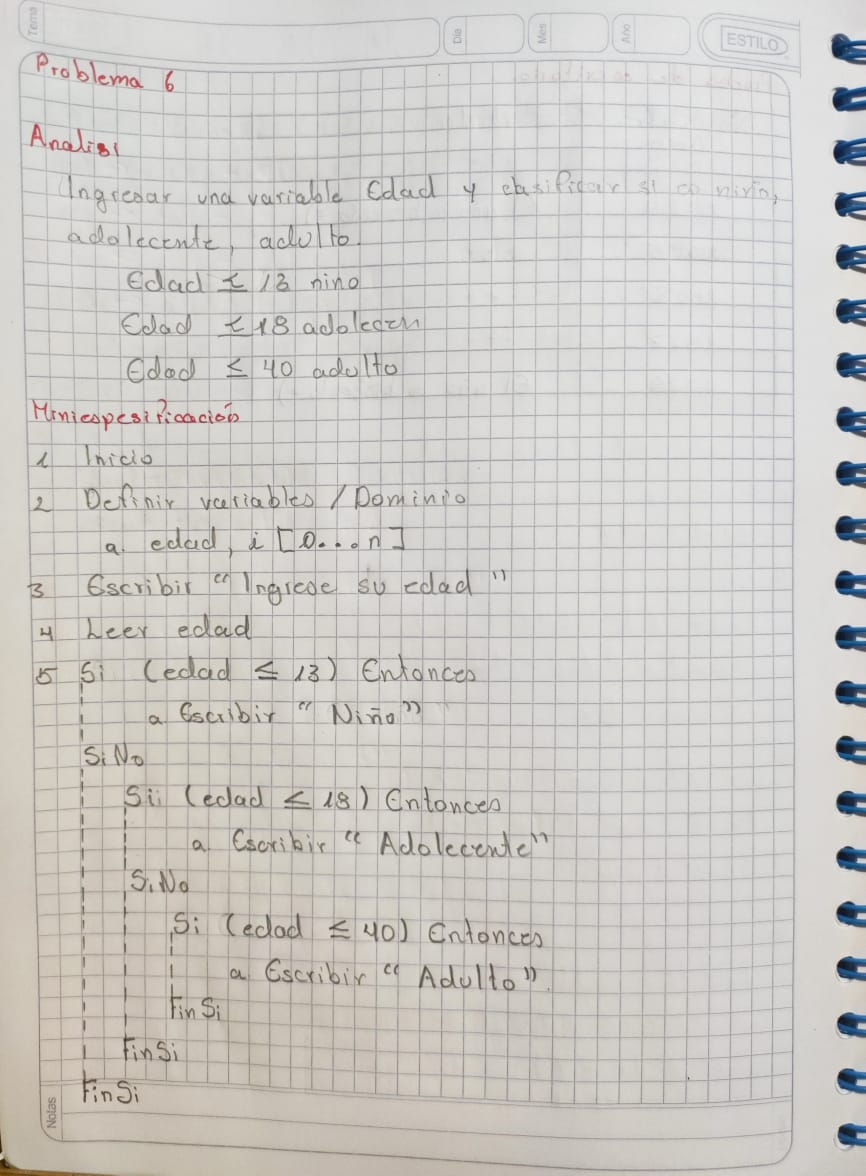 Tema
Dia
Mes
Año
ESTILO
Problema 6
Analisi
Ingresar una variable Edad y clasificar si es
adolecente, adulto.
Edad ≤ 13 nino
Edad ≤ 18 adolecen
Edad ≤ 40 adulto
Miniespesificación
1 Inicio
2 Definir variables / Dominio
a. edad, i [0...n]
3 Escribir "Ingrese su edad"
4 Leer edad
5 Si (edad ≤ 13) Entonces
a Escribir "Niño"
SiNo
Si (edad ≤ 18) Entonces
a. Escribir "Adolecente"
SiNo
Si (edad ≤ 40) Entonces
a Escribir "Adulto".
FinSi
FinSi
FinSi
Notas